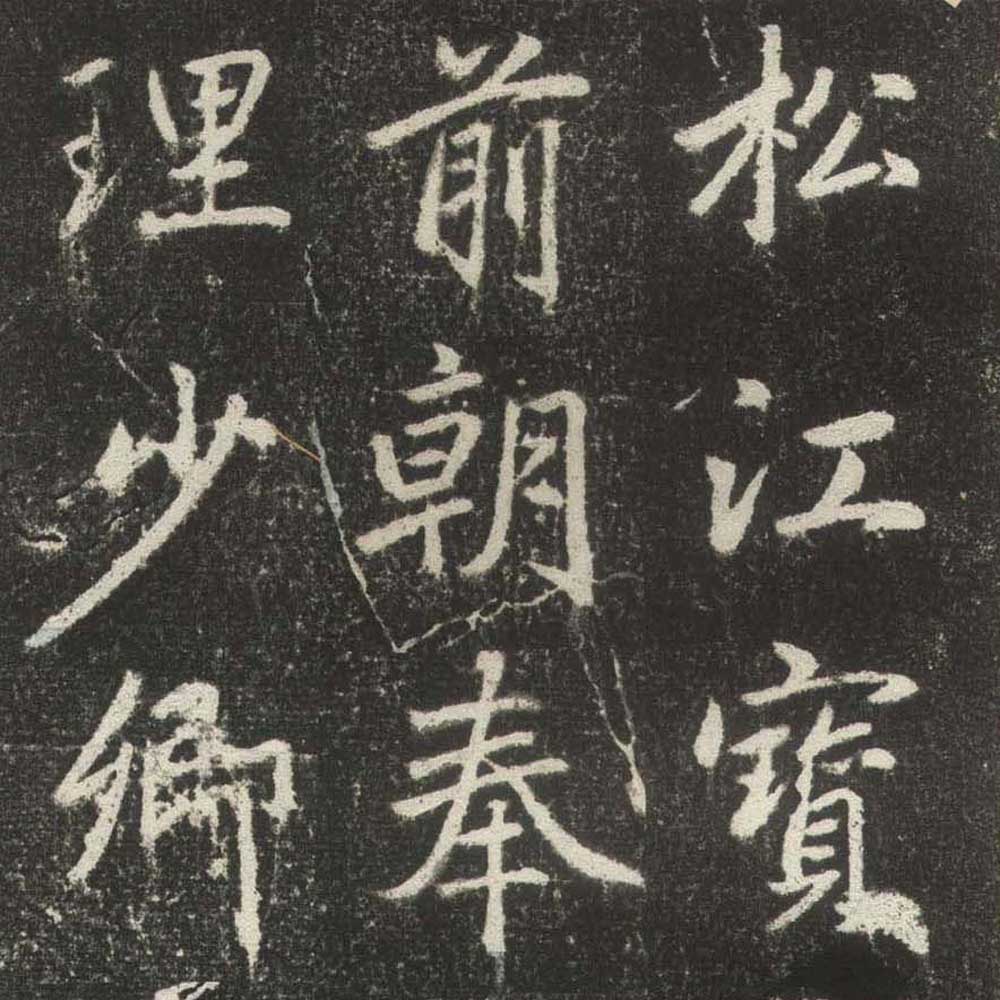 松江寳
前朝奉
理少卿